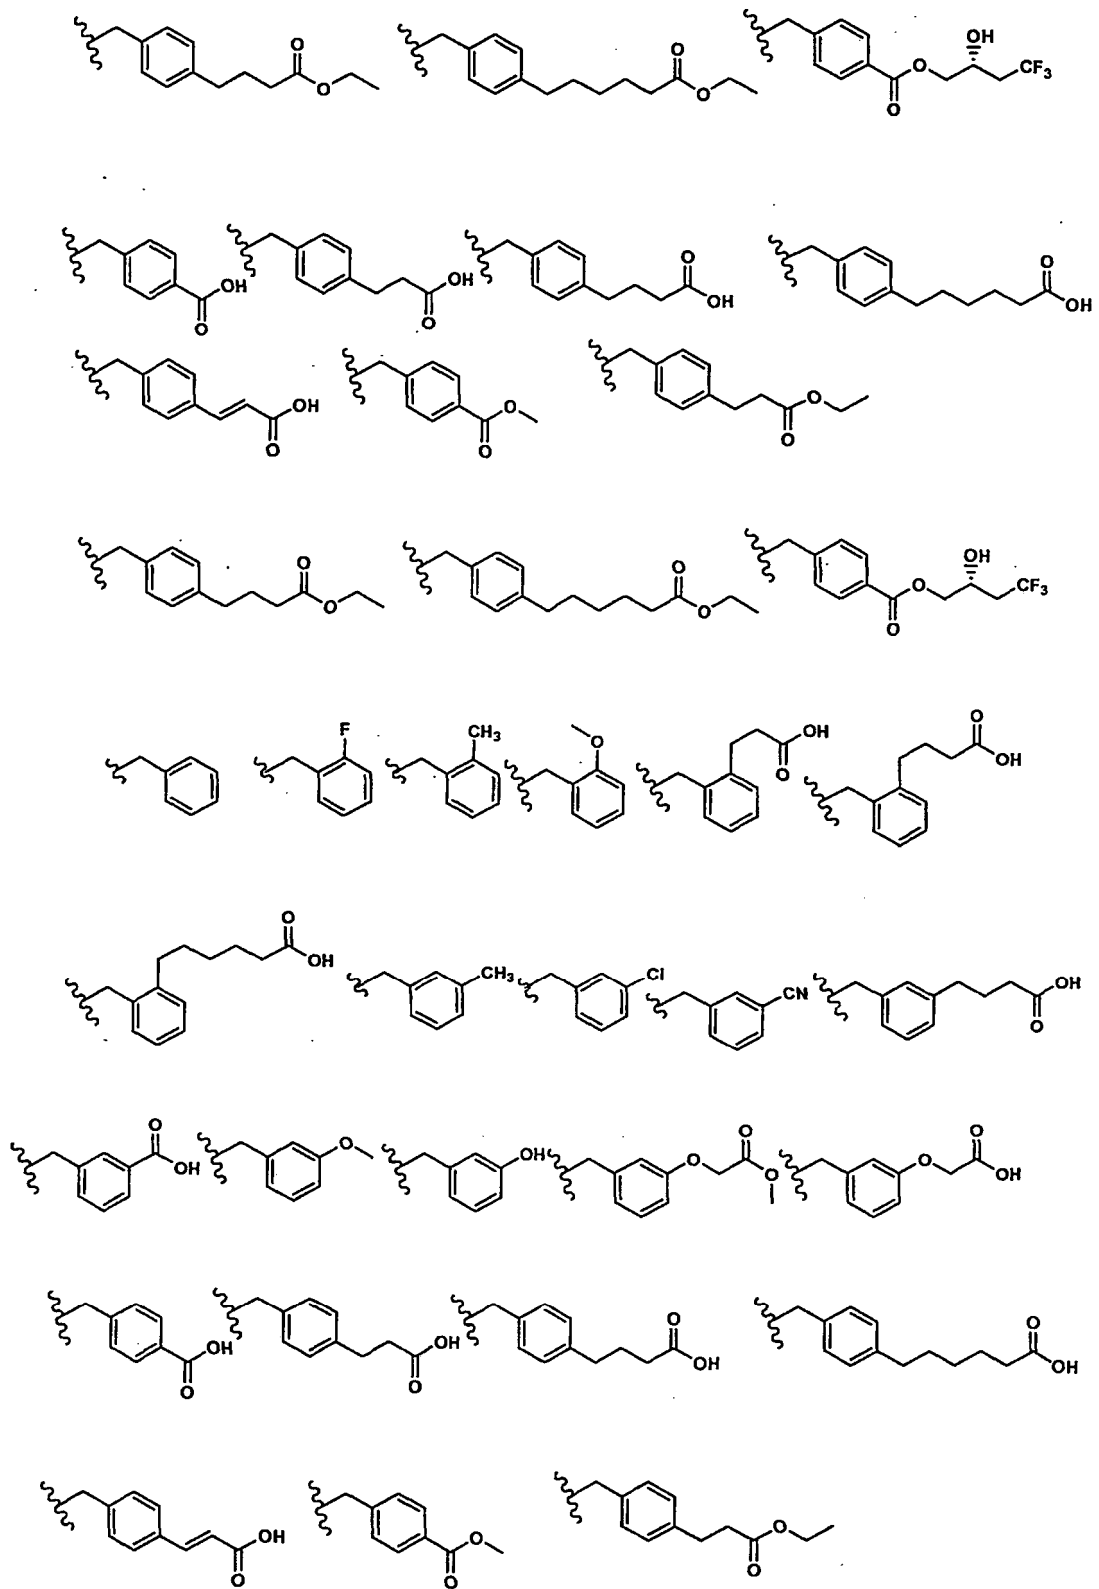 O O OH
O O O CF3
O
O O
OH OH OH OH
O O
OH O O
O O O
O O OH
O O O CF3
O
F CH3 O OH O
O OH
O
OH CH3 Cl CN OH
O
O O OH O O O O
OH O OH
O
OH OH OH OH
O O
OH O O
O O O